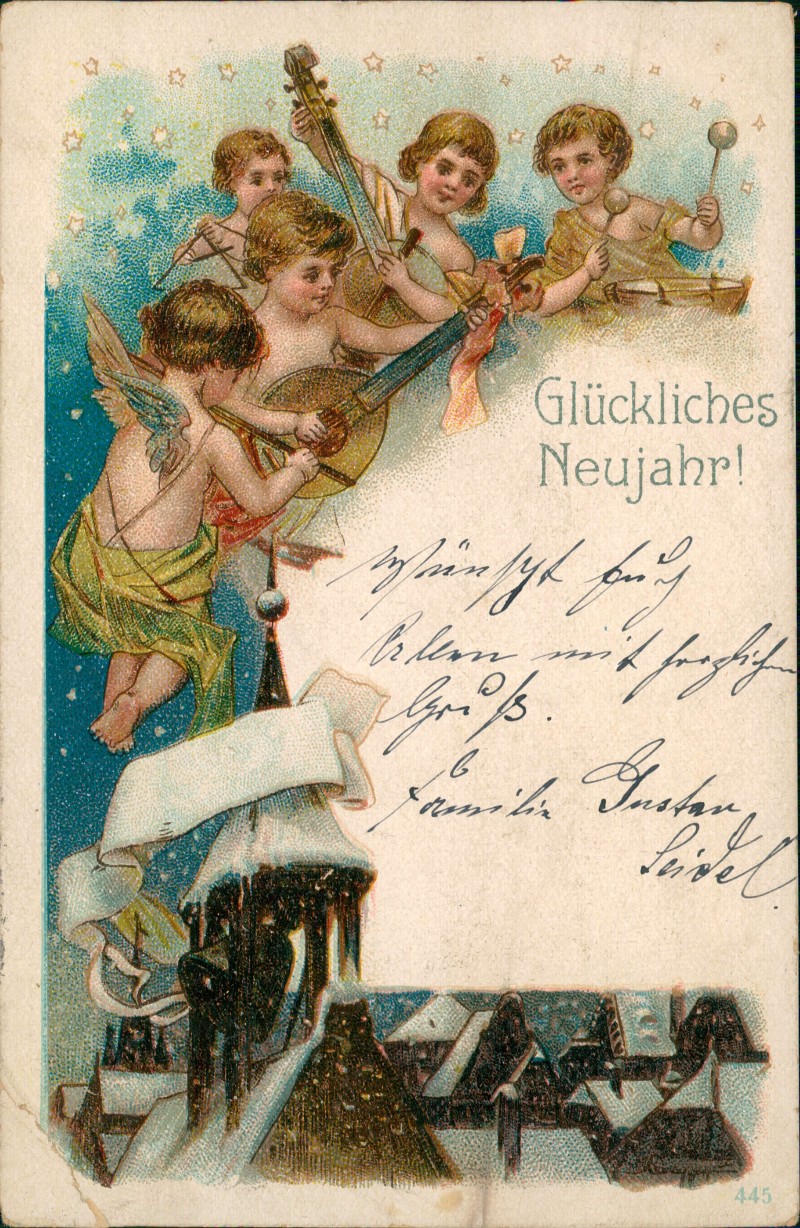 Glückliches
Neujahr!
Wünscht Euch
Allen mit herzlichem
Gruß.
Familie Gustav
Seidel.
445